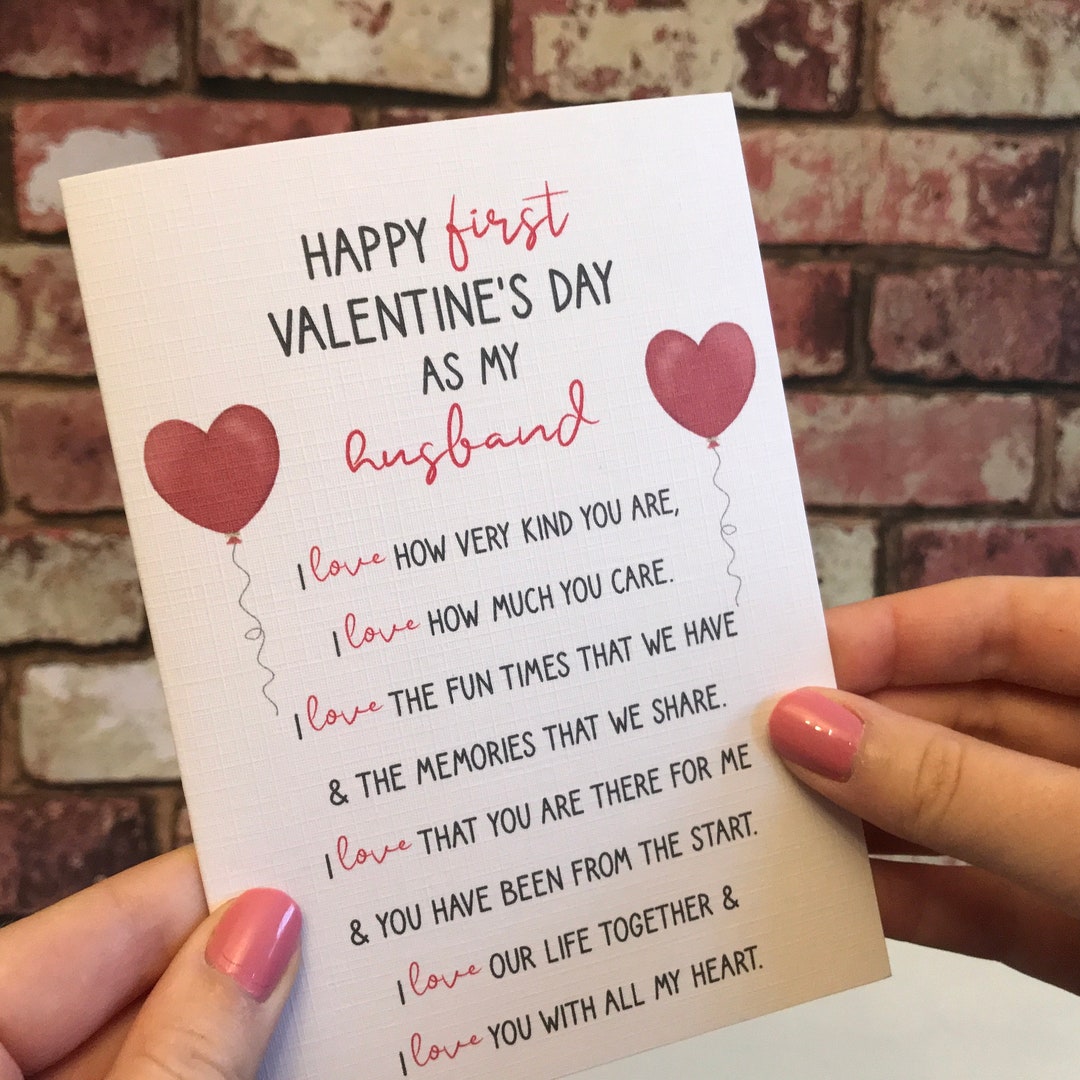 HAPPY first
VALENTINE'S DAY
AS MY
husband
I love HOW VERY KIND YOU ARE,
I love HOW MUCH YOU CARE.
I love THE FUN TIMES THAT WE HAVE
& THE MEMORIES THAT WE SHARE.
I love THAT YOU ARE THERE FOR ME
& YOU HAVE BEEN FROM THE START.
I love OUR LIFE TOGETHER &
I love YOU WITH ALL MY HEART.